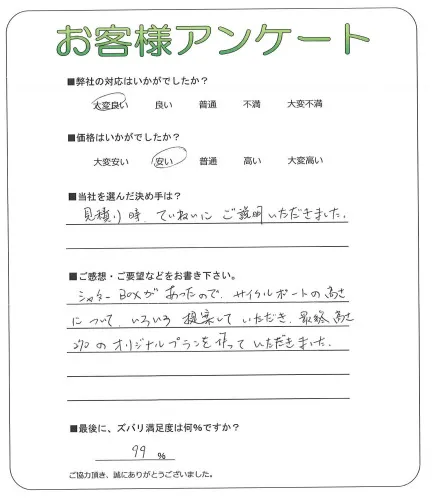 お客様アンケート
■弊社の対応はいかがでしたか？
大変良い 良い 普通 不満 大変不満
■価格はいかがでしたか？
大変安い 安い 普通 高い 大変高い
■当社を選んだ決め手は？
見積り時、ていねいにご説明いただきました。
■ご感想・ご要望などをお書き下さい。
シャッターBOXがあったので、サイクルポートの高さ
について、いろいろ提案していただき、最終高さ
270のオリジナルプランを作っていただきました。
■最後に、ズバリ満足度は何%ですか？
99 %
ご協力頂き、誠にありがとうございました。